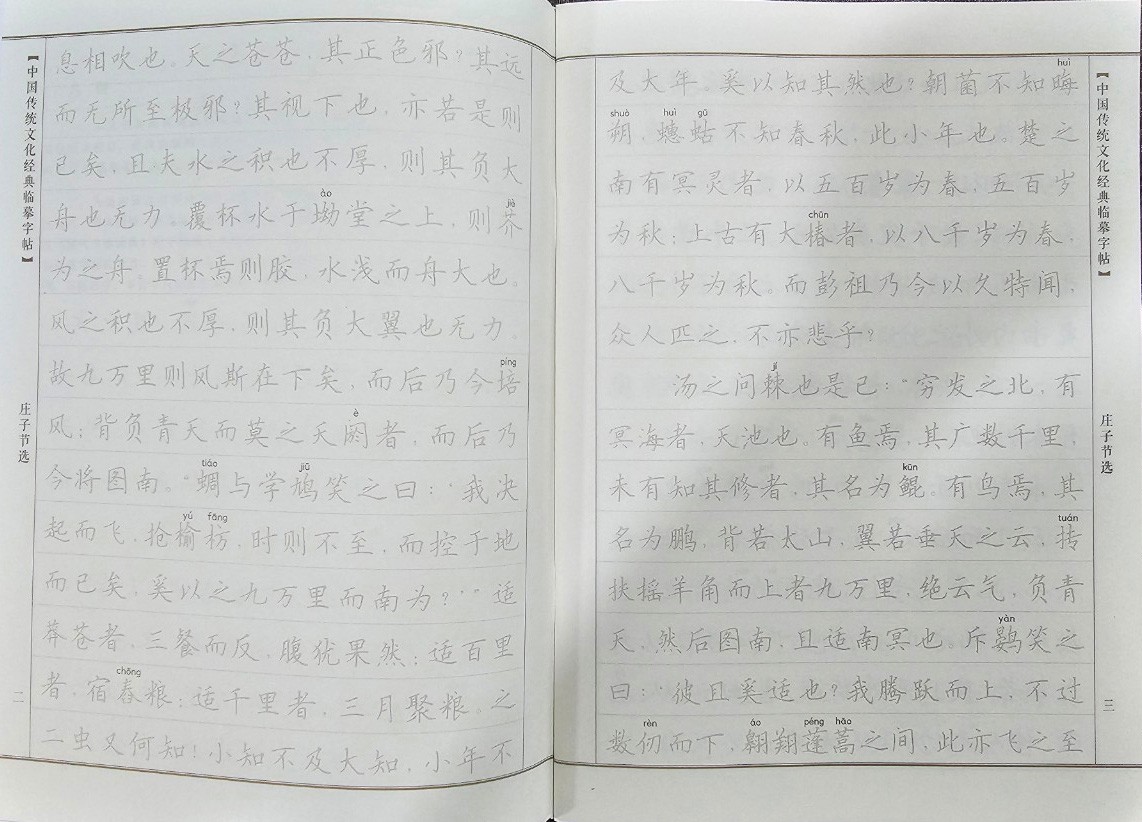 【中国传统文化经典临摹字帖】
庄子节选
二
息相吹也。天之苍苍,其正色邪?其远
而无所至极邪?其视下也,亦若是则
已矣,且夫水之积也不厚,则其负大
ào jiè
舟也无力。覆杯水于坳堂之上,则芥
为之舟。置杯焉则胶,水浅而舟大也。
风之积也不厚,则其负大翼也无力。
píng
故九万里则风斯在下矣,而后乃今培
è
风;背负青天而莫之夭阏者,而后乃
tiáo jiū
今将图南。“蜩与学鸠笑之曰:‘我决
yú fāng
起而飞,抢榆枋,时则不至,而控于地
而已矣,奚以之九万里而南为?’”适
莽苍者,三餐而反,腹犹果然;适百里
chōng
者,宿舂粮;适千里者,三月聚粮。之
二虫又何知!小知不及大知,小年不
huì
及大年。奚以知其然也?朝菌不知晦
shuò huì gū
朔,蟪蛄不知春秋,此小年也。楚之
南有冥灵者,以五百岁为春,五百岁
chūn
为秋;上古有大椿者,以八千岁为春,
八千岁为秋。而彭祖乃今以久特闻,
众人匹之,不亦悲乎?
jí
汤之问棘也是已:“穷发之北,有
冥海者,天池也。有鱼焉,其广数千里,
kūn
未有知其修者,其名为鲲。有鸟焉,其
tuán
名为鹏,背若太山,翼若垂天之云,抟
扶摇羊角而上者九万里,绝云气,负青
yàn
天,然后图南,且适南冥也。斥鷃笑之
曰:‘彼且奚适也?我腾跃而上,不过
rèn áo péng hāo
数仞而下,翱翔蓬蒿之间,此亦飞之至
【中国传统文化经典临摹字帖】
庄子节选
三